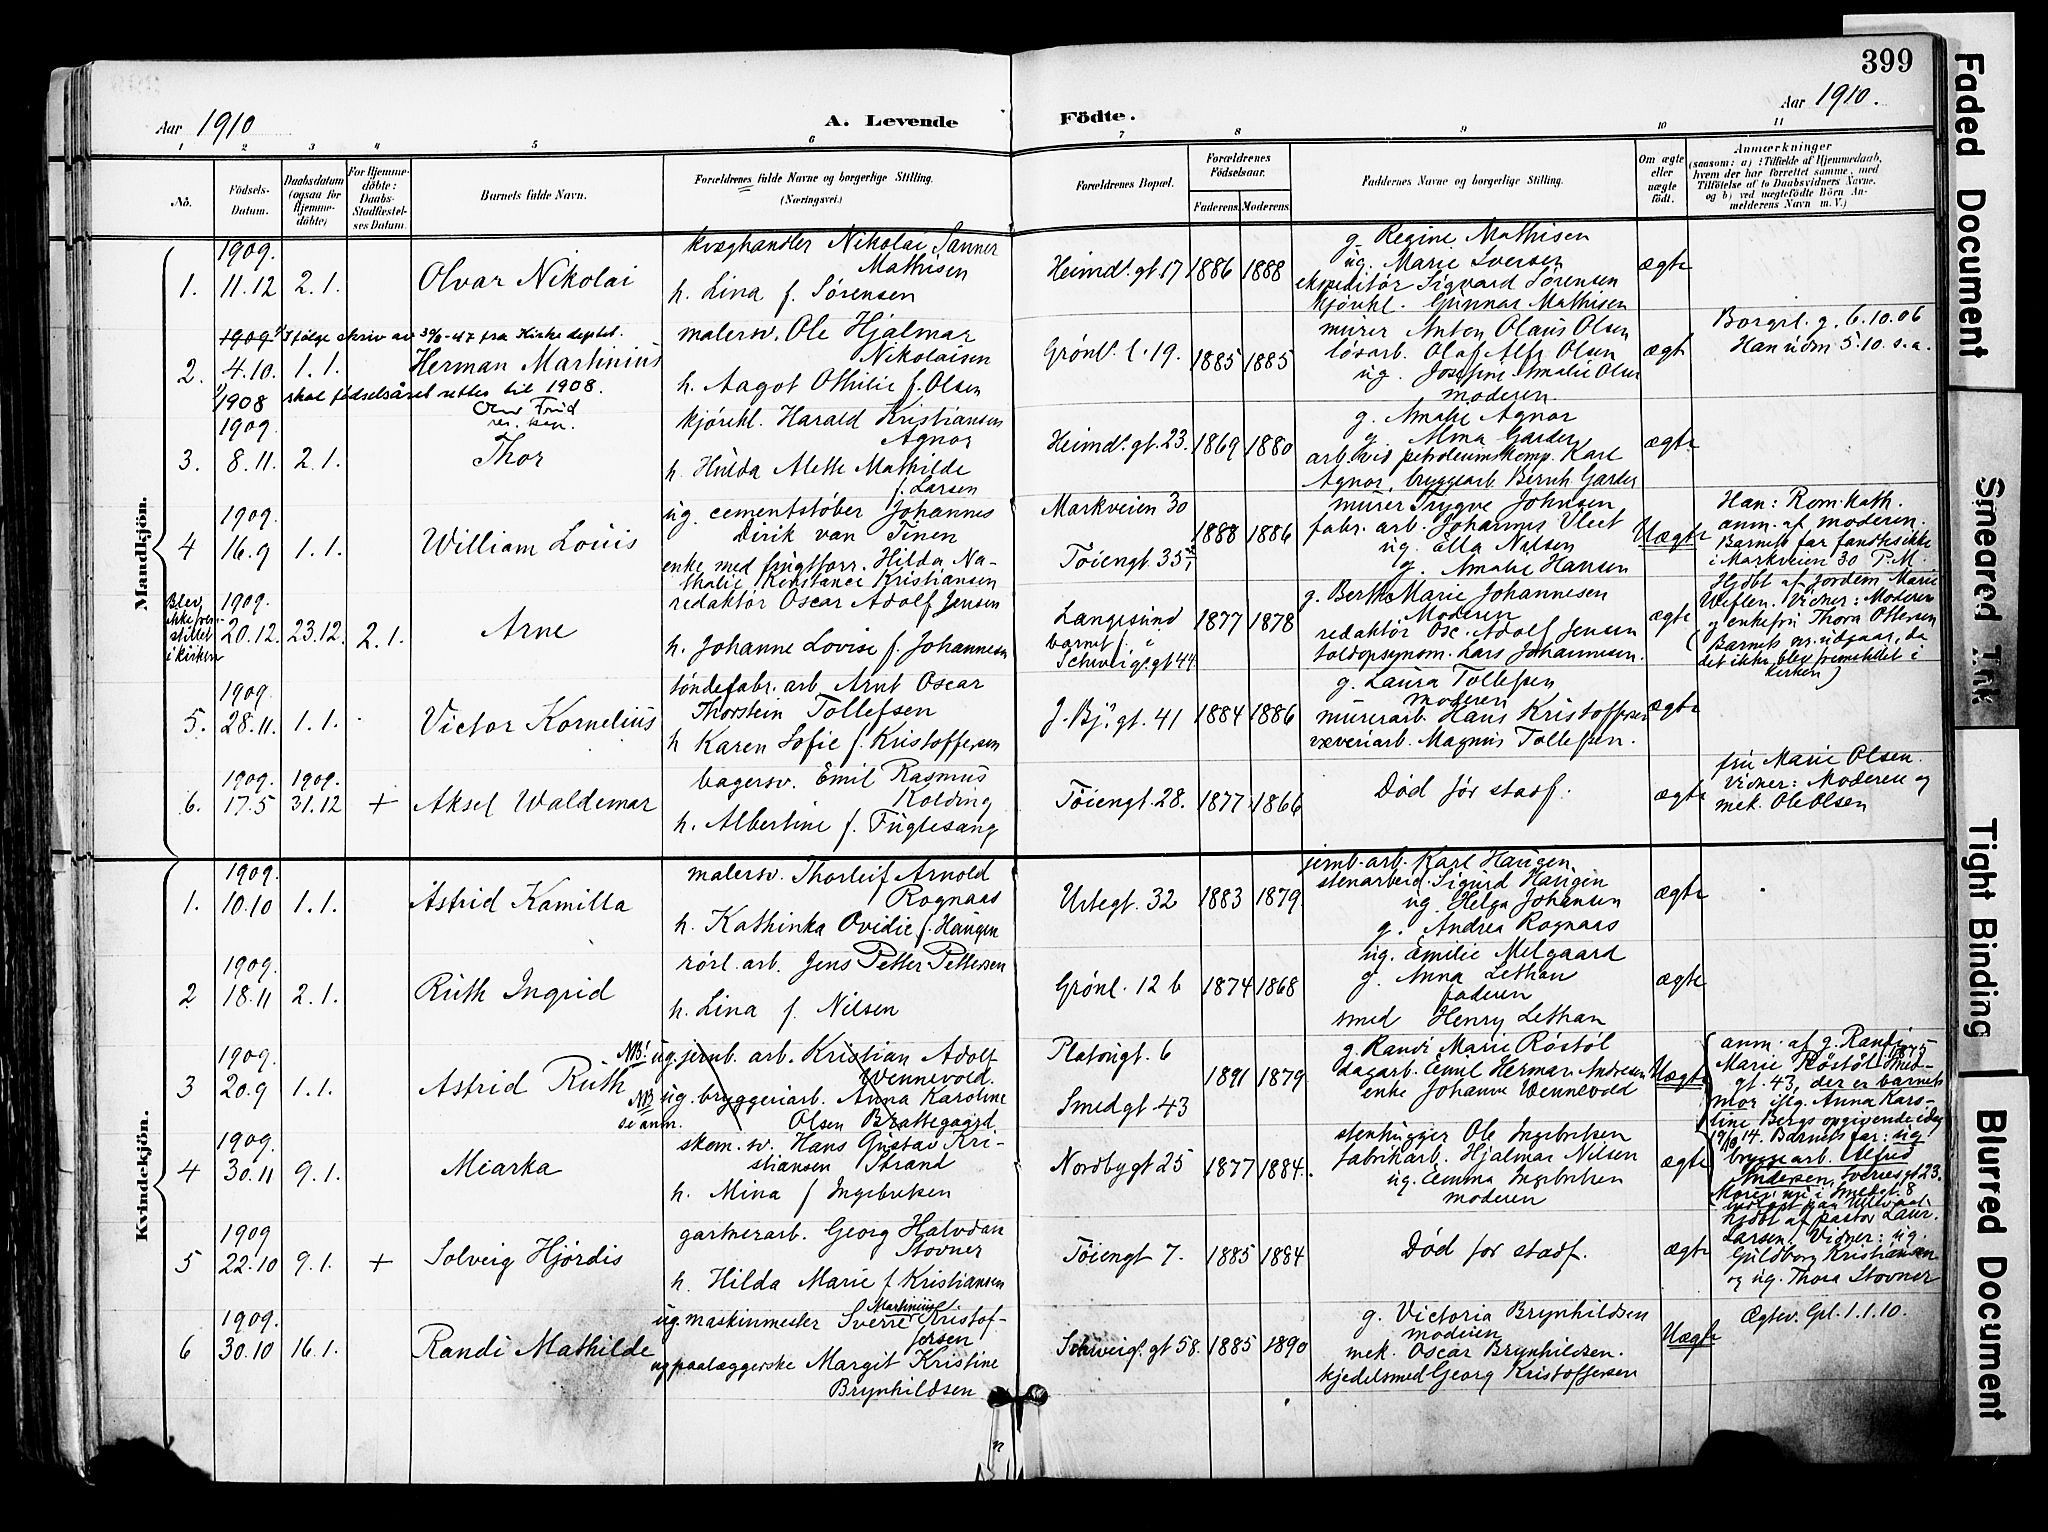 399
Aar 1910
A. Levende Födte.
Aar 1910.
1 2 3 4 5 6 7 8 9 10 11
No.
Födsels-Datum.
Daabsdatum (ogsaa for Hjemme-döbte)
For Hjemme-döbte: Daabs-Stadfæstel-ses Datum.
Barnets fulde Navn.
Forældrenes fulde Navne og borgerlige Stilling.
(Næringsvei.)
Forældrenes Bopæl.
Forældrenes Födselsaar.
Faderens. Moderens.
Faddernes Navne og borgerlige Stilling.
Om ægte eller uægte födt.
Anmærkninger
(saasom: a) i Tilfælde af Hjemmedaab,
hvem der har forrettet samme, med
Tilföielse af to Daabsvidners Navne,
og b) ved uægtefödte Börn An-
melderens Navn m. V.)
Mandkjön.
1. 1909. 11.12 2.1. Olvar Nikolai
kvæghandler Nikolai Sanner
Mathisen
h. Lina f. Sørensen
Heimd. gt 17 1886 1888
g. Regine Mathisen
ug. Marie Iversen
ekspeditör Sigvard Sørensen
kjörekl. Gunnar Mathisen
ægte
2. 1909 4.10. 1.1. Herman Martinius
Ifølge skriv av 30/-47 fra Kirkedeptet.
skal fødselsåret rettes til 1908.
1908
res. kap.
malersv. Ole Hjalmar
Nikolaisen
h. Aagot Othilie f. Olsen
Grønl. l. 19. 1885 1885
murer Anton Olaus Olsen
løsarb. Olaf Alfr. Olsen
ug. Josefine Amalie Olsen
moderen.
ægte
Borgrl. g. 6.10.06
Han udm 5.10. s.a.
3. 1909. 8.11. 2.1. Thor
kjörekl. Harald Kristiansen
Agnor
h. Hulda Alette Mathilde
f. Larsen
Heimd. gt. 23. 1869 1880
g. Amalie Agnor
g. Alma Garder
arb. ved petroleumskomp. Karl
Agnor, bryggearb Bernh Garder
ægte
4 1909. 16.9 1.1. William Louis
ug. cementstøber Johannes
Dirik van Tinen
enke med frugtforr. Hilda Na-
thalie Konstance Kristiansen
Markveien 30
Töiengt. 35 1888 1886
murer Trygve Johnsen
fabr. arb. Johannes Vleet
ug. Ella Nilsen
g. Amalie Hansen
Uægte
Han: Rom. kath.
anm. af moderen.
Barnets far fandtes ikke
i Markveien 30 P.M.
Blev ikke frem-stillet i kirken
1909. 20.12. 23.12. 2.1. Arne
redaktør Oscar Adolf Jensen
h. Johanne Lovise f. Johannesen
Langesund
barnet f. i
Schweig. gt 44. 1877 1878
g. Berthe Marie Johannesen
Moderen
redaktör Osc. Adolf Jensen
toldopsynsm. Lars Johannesen.
ægte
Hjdbt af Jordem. Marie
Veflen. Vidner: Moderen
og enkefru Thora Ottersen
(Barnets nr. udgaar, da
det ikke blev fremstillet i
kirken)
5. 1909. 28.11. 1.1. Victor Kornelius
töndefabr. arb Arnt Oscar
Thorstein Tollefsen
h Karen Sofie f. Kristoffersen
J. Bj. gt. 41 1884 1886
g. Laura Tollefsen
moderen
murerarb. Hans Kristoffersen
væveriarb. Magnus Tollefsen.
ægte
6. 1909. 17.5 1909. 31.12 + Aksel Waldemar
bagersv. Emil Rasmus
Kolding
h. Albertine f. Fuglesang
Töiengt. 28. 1877 1866
Död för stadf.
ægte
fru Marie Olsen.
Vidner: Moderen og
mek. Ole Olsen
Kvindekjön.
1. 1909. 10.10 1.1. Astrid Kamilla
malersv. Thorleif Arnold
Rognaas
h. Kathinka Ovidie f. Haugen
Urtegt. 32 1883 1879
jernb. arb. Karl Haugen
stenarbeid. Sigurd Haugen
ug. Helga Johansen
g. Andrea Rognaas
ægte
2 1909. 18.11 2.1. Ruth Ingrid
rörl. arb. Jens Petter Pettersen
h. Lina f. Nilsen
Grönl. 12 b 1874 1868
ug. Emilie Melgaard
g. Anna Lethan
faderen
smed Henry Lethan
ægte
3 1909. 20.9 1.1. Astrid Ruth
NB! ug. jernb. arb. Kristian Adolf
Wennevold.
NB ug. bryggeriarb. Anna Karoline
se anm. Olsen Brattegaard
Platougt. 6
Smedgt. 43 1891 1879
g. Randi Marie Röstöl
dagarb. Emil Herman Andresen
enke Johanne Wennevold
Uægte
anm. af g. Randi
Marie Röstöl, Smed-
gt. 43, der er barnets
mor iflg. Anna Karo-
line Bergs opgivende idag
14. Barnets far: ug
bryggearb. Alfred
Andersen, Sveresgt 23.
4 1909. 30.11 9.1. Miarka
skom. sv. Hans Gustav Kri-
stiansen Strand
h. Mina f Ingebretsen
Nordbygt 25 1877 1884.
stenhugger Ole Ingebretsen
fabrikarb. Hjalmar Nilsen
ug. Emma Ingebretsen
moderen
ægte
5 1909 22.10 9.1. + Solveig Hjördis
gartnerarb. Georg Halvdan
Stovner
h. Hilda Marie f Kristiansen
Töiengt 7. 1885 1884
Död for stadf.
ægte
hjdbt af pastor Laur.
Larsen. Vidner: ug.
Guldborg Kristiansen
og ug. Thora Stovner
6 1909. 30.10 16.1. Randi Mathilde
ug. maskinmester Sverre Martinius Kristof-
fersen
ug paalæggerske Margit Kristine
Brynhildsen
Schweig. gt 58. 1885 1890
g. Victoria Brynhildsen
moderen
mek. Oscar Brynhildsen.
kjedelsmed Georg Kristoffersen
Uægte
Ægtev. Grl. 1.1.10.
Faded Document
Smeared Ink
Tight Binding
Blurred Document